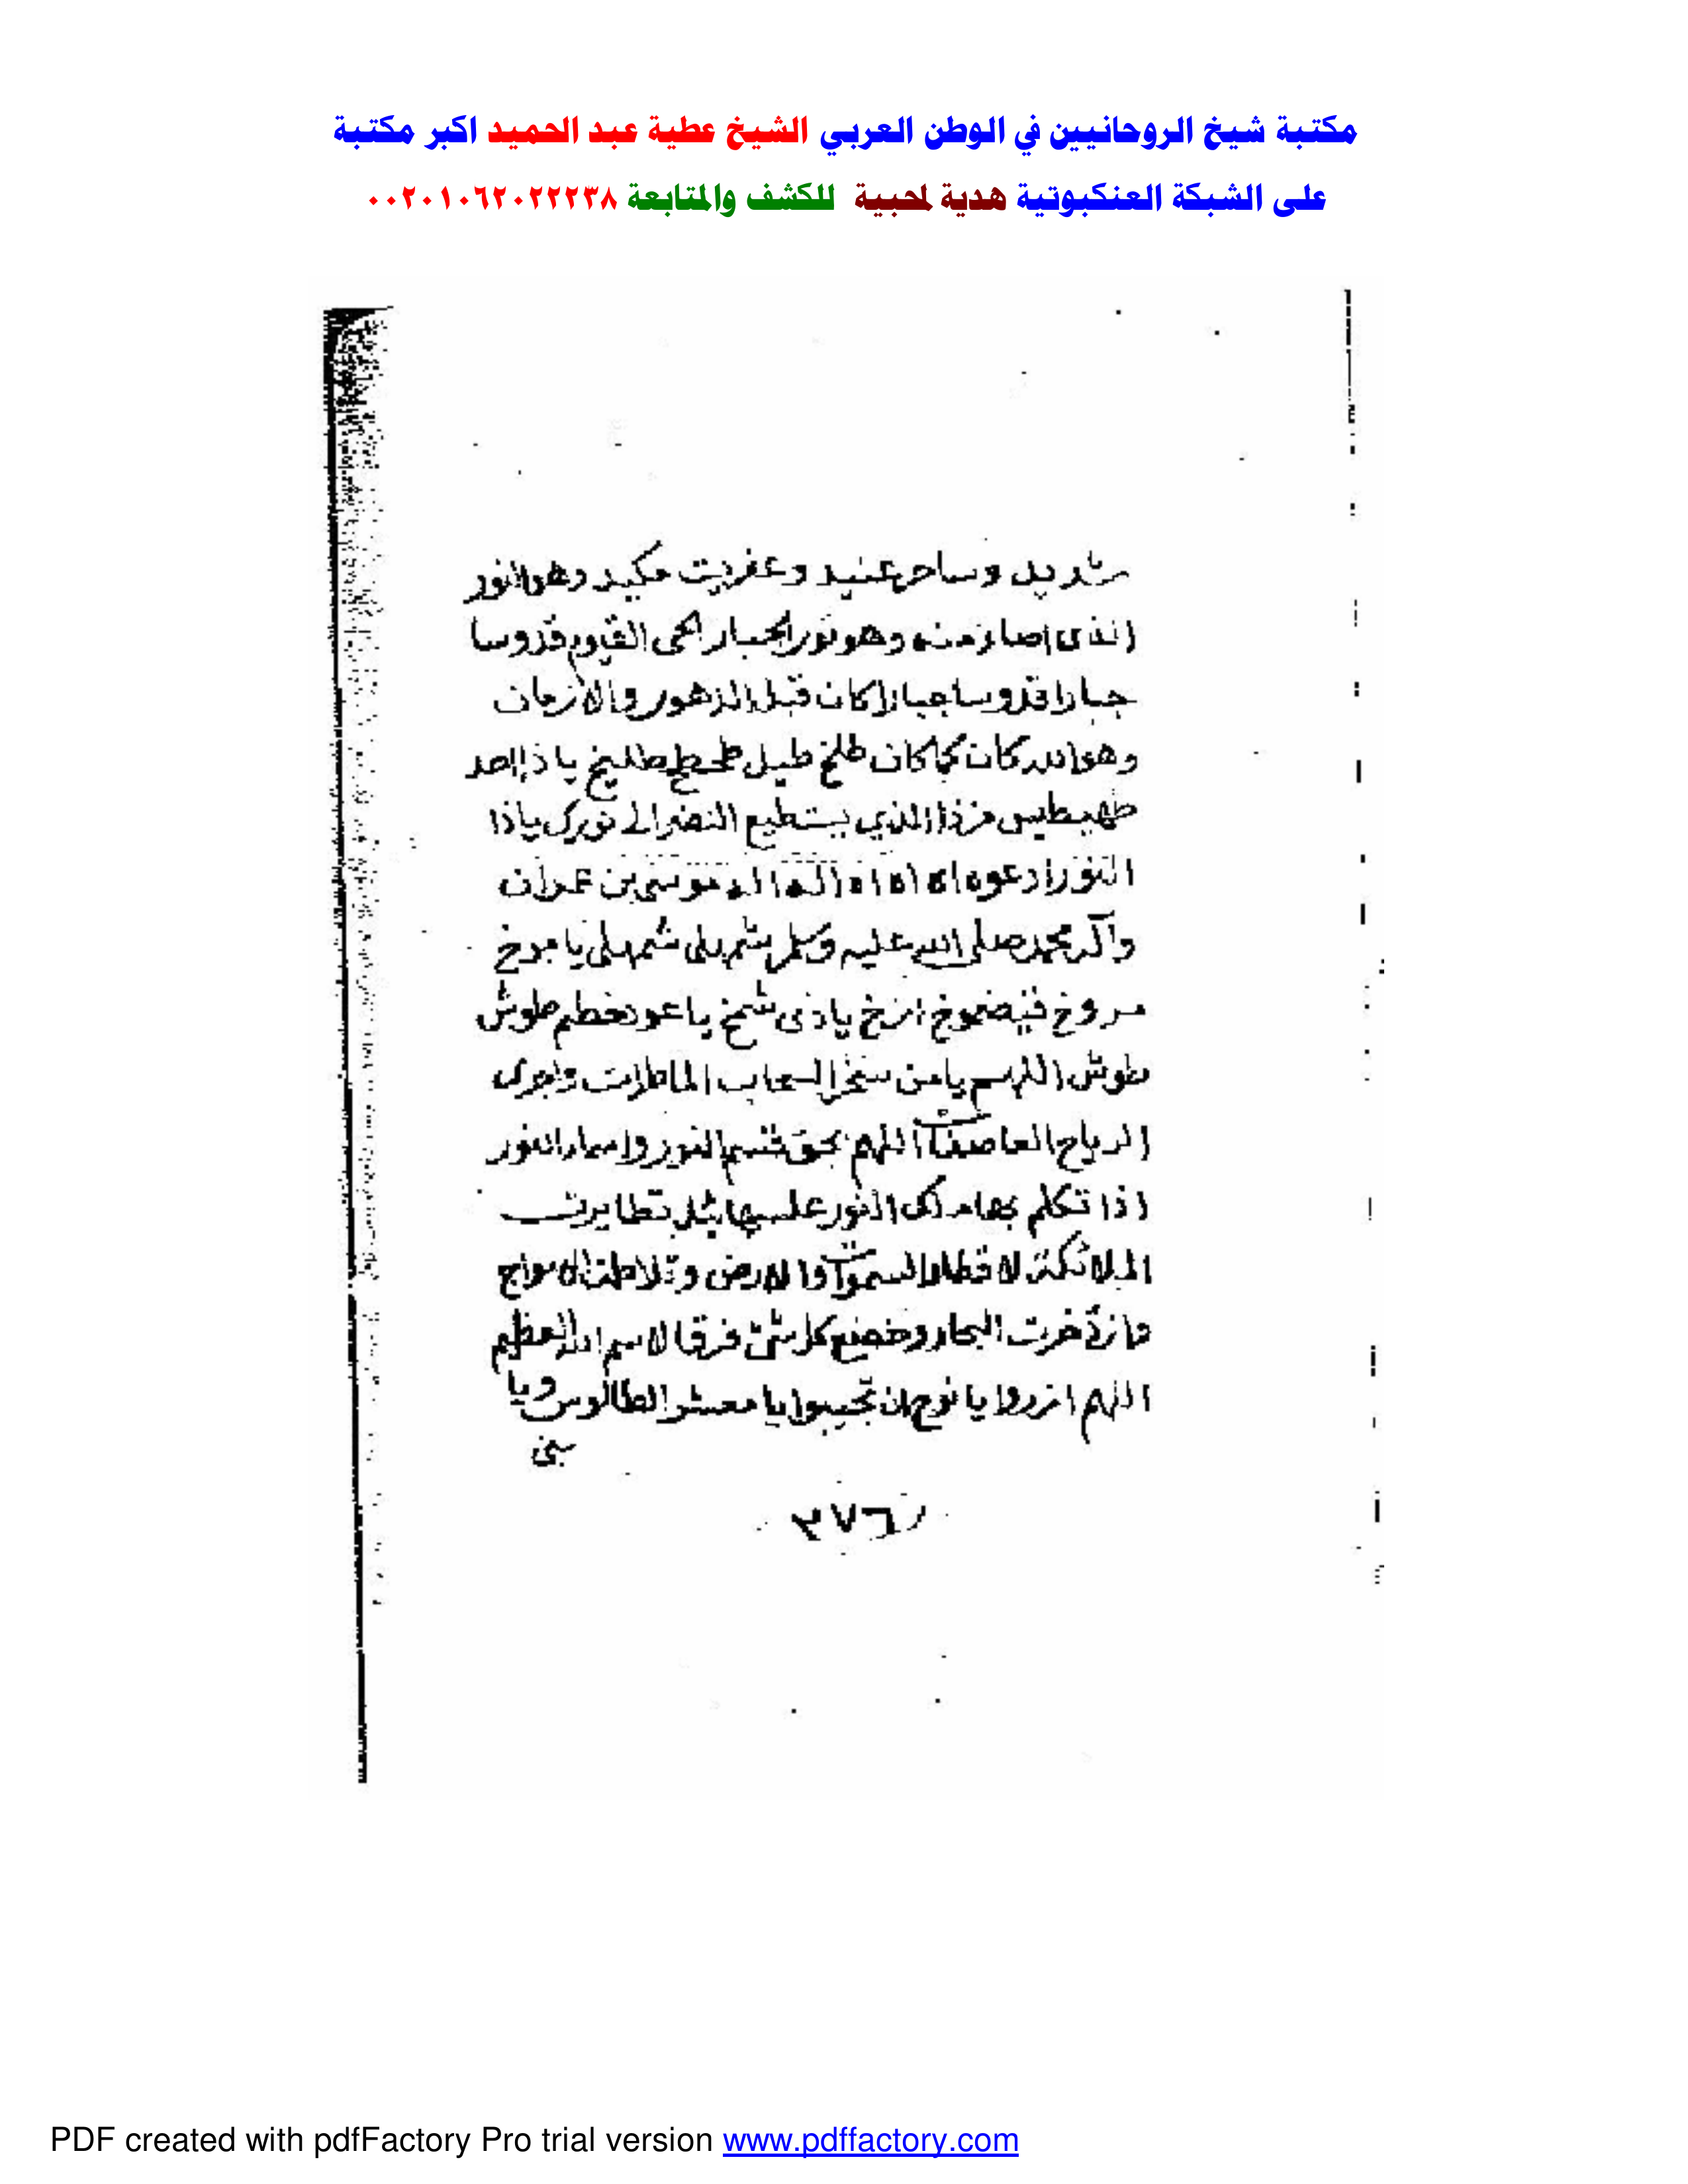 مكتبة شيخ الروحانيين في الوطن العربي الشيخ عطية عبد الحميد اكبر مكتبة
على الشبكة العنكبوتية هدية لمحبية للكشف والمتابعة ٠٠٢٠١٠٦٢٠٢٢٢٣٨
وساحر عنيد وعفريت مكيد وهو النور
الذى منه وهو نور الجبار الحى القيوم قدوسا
جبارا قدوسا جبارا كان قبل الدهور والازمان
وهو الله كان كما كان طلخ طيل طليخ يا ذا
الذي يستطيع النضر الى نورك ياذا
النور ادعوه اه اه اه اله موسى بن عمران
وآله محمد صلى الله عليه وسلم يا مروخ
مروخ ازخ ياذى شمخ يا طوش
طوش اللهم يا من سخر السحاب الماطرات واجرى
الرياح العاصفات اللهم بحق قسم النور واسماء النور
اذا تكلم بها ملك النور تطايرت
الملائكة لاقطار السموات والارض وتلاطمت الامواج
وازذخرت البحار وخضع كل شئ فرقا لاسم الله العظيم
اللهم يا تجيبوا يا معشر ويا
بنى
٣٧٦
PDF created with pdfFactory Pro trial version www.pdffactory.com